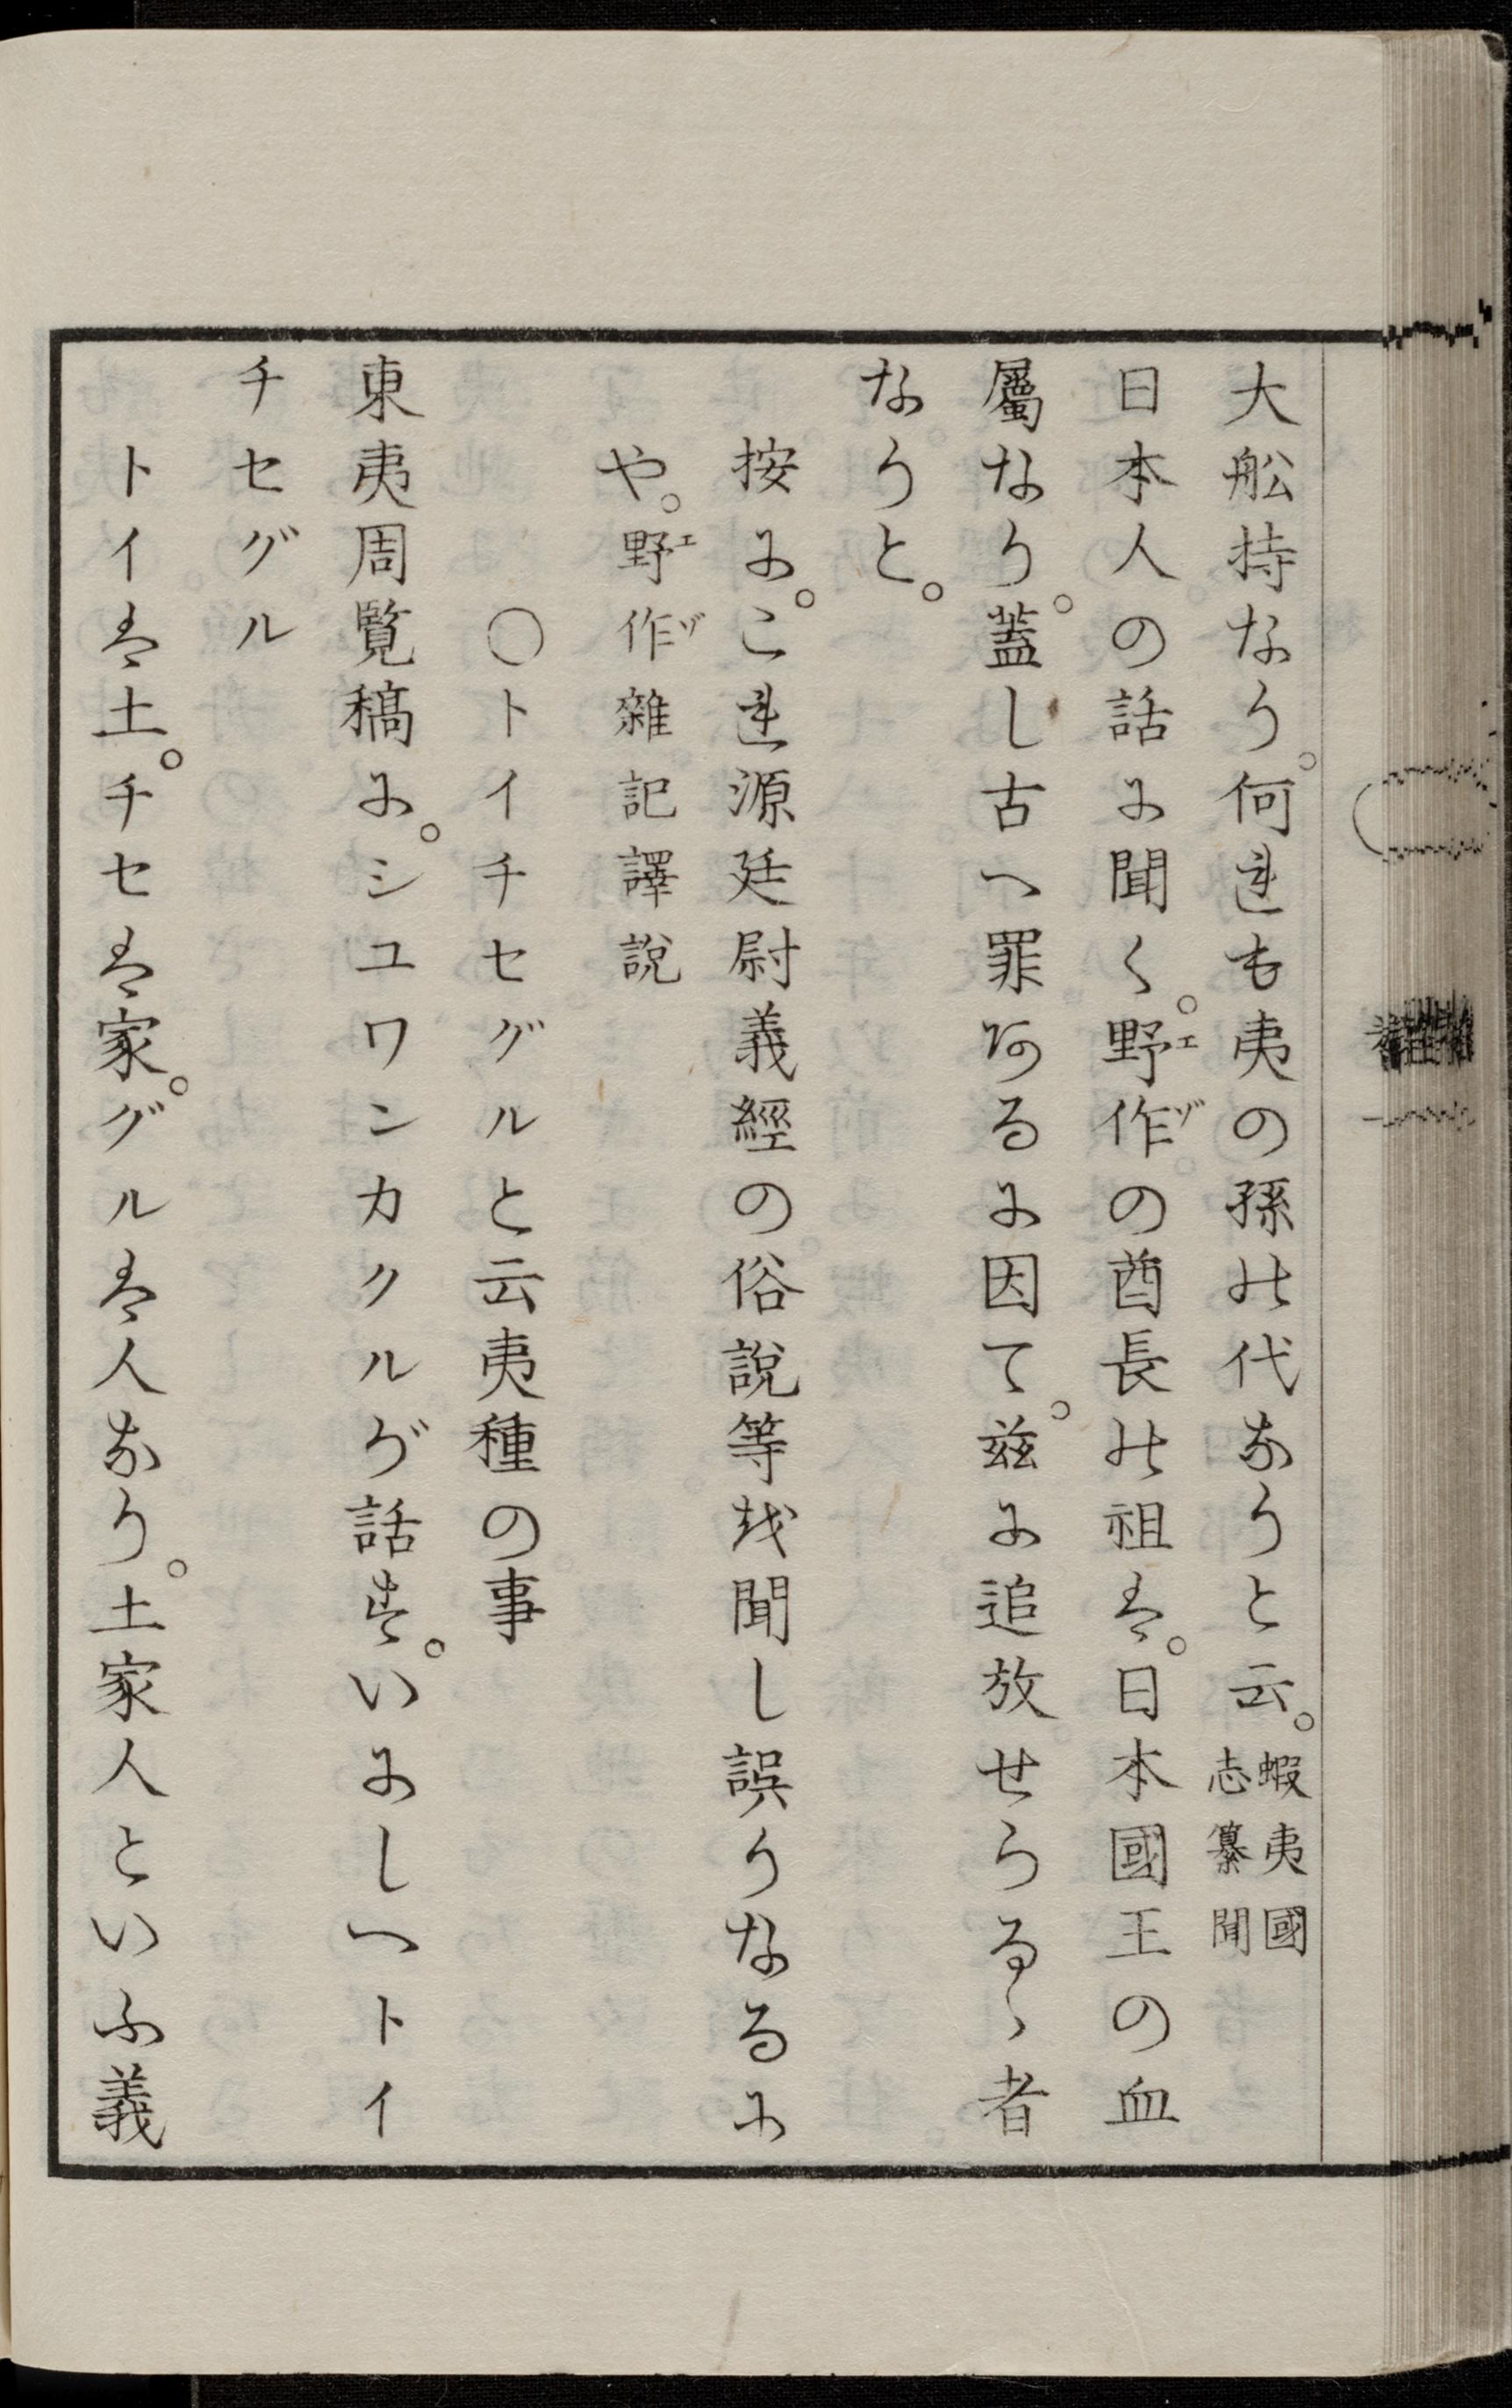 大舩持なり。何れも夷の孫の代なりと云。蝦夷國志纂聞
日本人の話に聞く。野エ作ゾの酋長の祖は。日本國王の血
屬なり。蓋し古へ罪あるに因て。玆に追放せらるゝ者
なりと。
按に。これ源廷尉義經の俗說等を聞し誤りなるに
や。野エ作ゾ雜記譯說
〇トイチセグルと云夷種の事
東夷周覧稿に。シユワンカクルグ話す。いにしへトイ
チセグル
トイは土。チセは家。グルは人なり。土家人といふ義